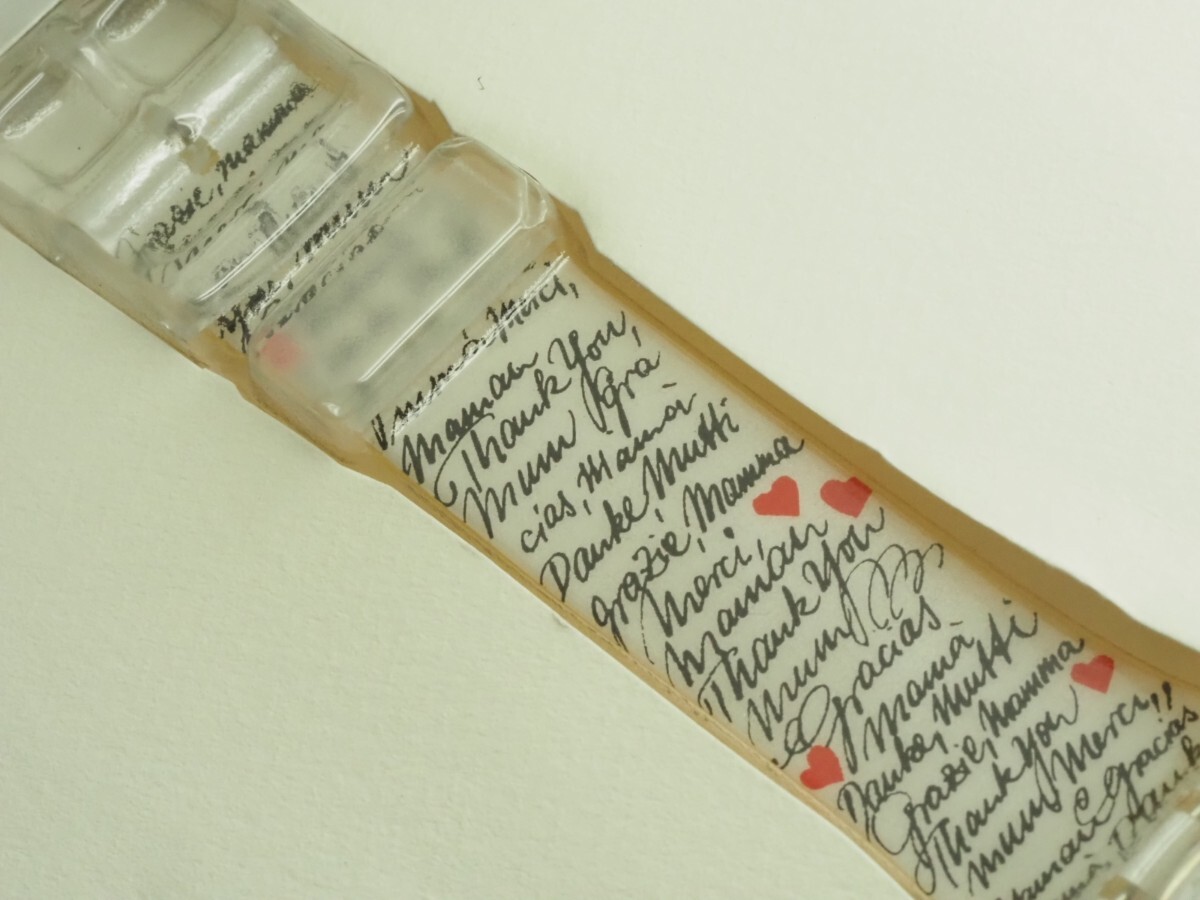 Grazie, Mamma
You, Mum
Gracias
Mamá, Merci,
Maman
Thank You,
Mum Gra
cias, Mamá
Danke, Mutti
Grazie, Mamma
Merci,
Maman
Thank You
Mum
Gracias
Mamá,
Danke, Mutti
Grazie, Mamma
Thank You
Mum Merci,,
Maman Gracias